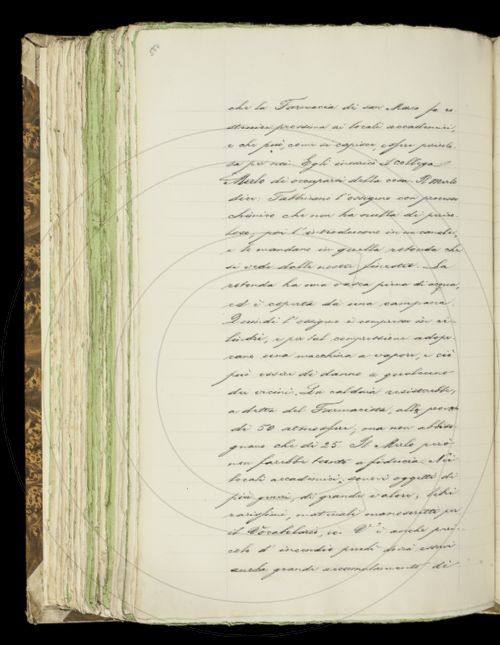 che la Farmacia di san Marco fa
presima ai locali accademici,
e che può, come si capisce, esser pericolo
sa per noi. Egli incaricò il collega
Merlo di occuparsi della cosa. Il Merlo
dice: Fabbricano l'ossigeno con processo
chimico che non ha nulla di perico
loso; poi l'introducono in un canale,
e lo mandano in quella rotonda che
si vede dalle nostre finestre. La
rotonda ha una vasca piena di acqua,
ed è coperta da una campana.
Quindi l'ossigeno è compresso in ci
lindri, e per tal compressione adope
rano una macchina a vapore, e ciò
può essere di danno a qualcuno
dei vicini. La caldaia resisterebbe,
a detta del Farmacista, alla pression
di 50 atmosfere, ma non abbiso
gnano che di 25. Il Merlo però
non farebbe tanto a fidanza. Nei
locali accademici, sonvi oggetti di
più prezzi, di grande valore; libri
rarissimi, materiali manoscritti per
il Vocabolario, ec. V'è anche peri
colo d'incendio perché
anche grandi accumulamenti di